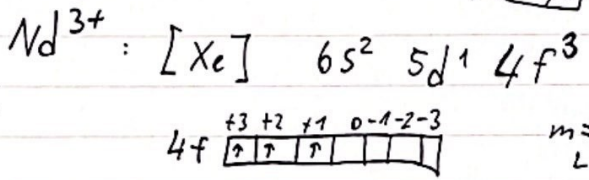 Nd3+ : [Xe] 6s2 5d1 4f3
+3 +2 +1 0 -1 -2 -3
4f ↑ ↑ ↑
m=
L